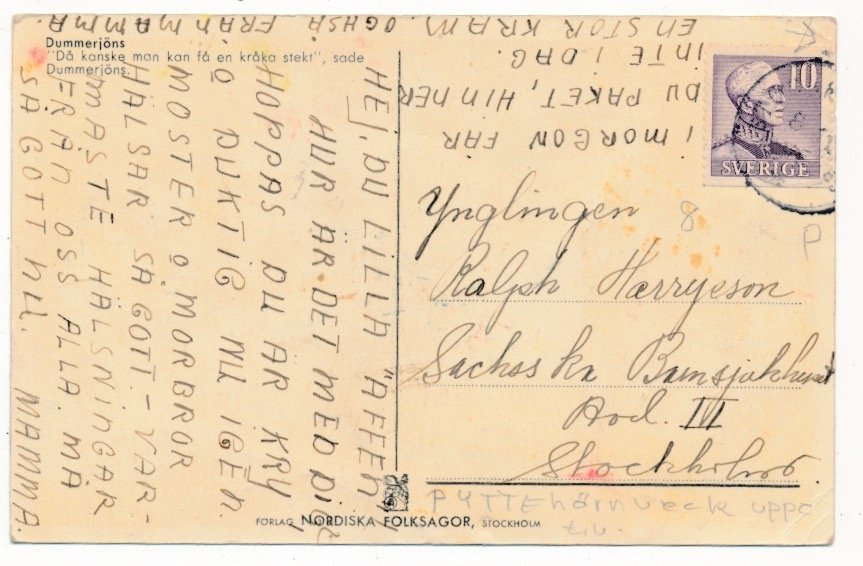 Dummerjöns
"Då kanske man kan få en kråka stekt", sade
Dummerjöns.
HEJ, DU LILLA "AFFEN",
HUR ÄR DET MED DIG,
HOPPAS DU ÄR KRY
O DUKTIG NU IGEN.
MOSTER O MORBROR
HÄLSAR SÅ GOTT - VAR-
MASTE HÄLSNINGAR
FRÅN OSS ALLA. MÅ
SÅ GOTT NU. MAMMA.
I MORGON FÅR
DU PAKET, HINNER
INTE I DAG.
EN STOR KRAM. OCKSÅ FRÅN MAMMA
10
SVERIGE
Ynglingen
Ralph Harryeson
Sachsska Barnsjukhuset
Avd. III
Stockholm.
8
P
PYTTEhörnveck uppe
t.v.
FÖRLAG NORDISKA FOLKSAGOR, STOCKHOLM